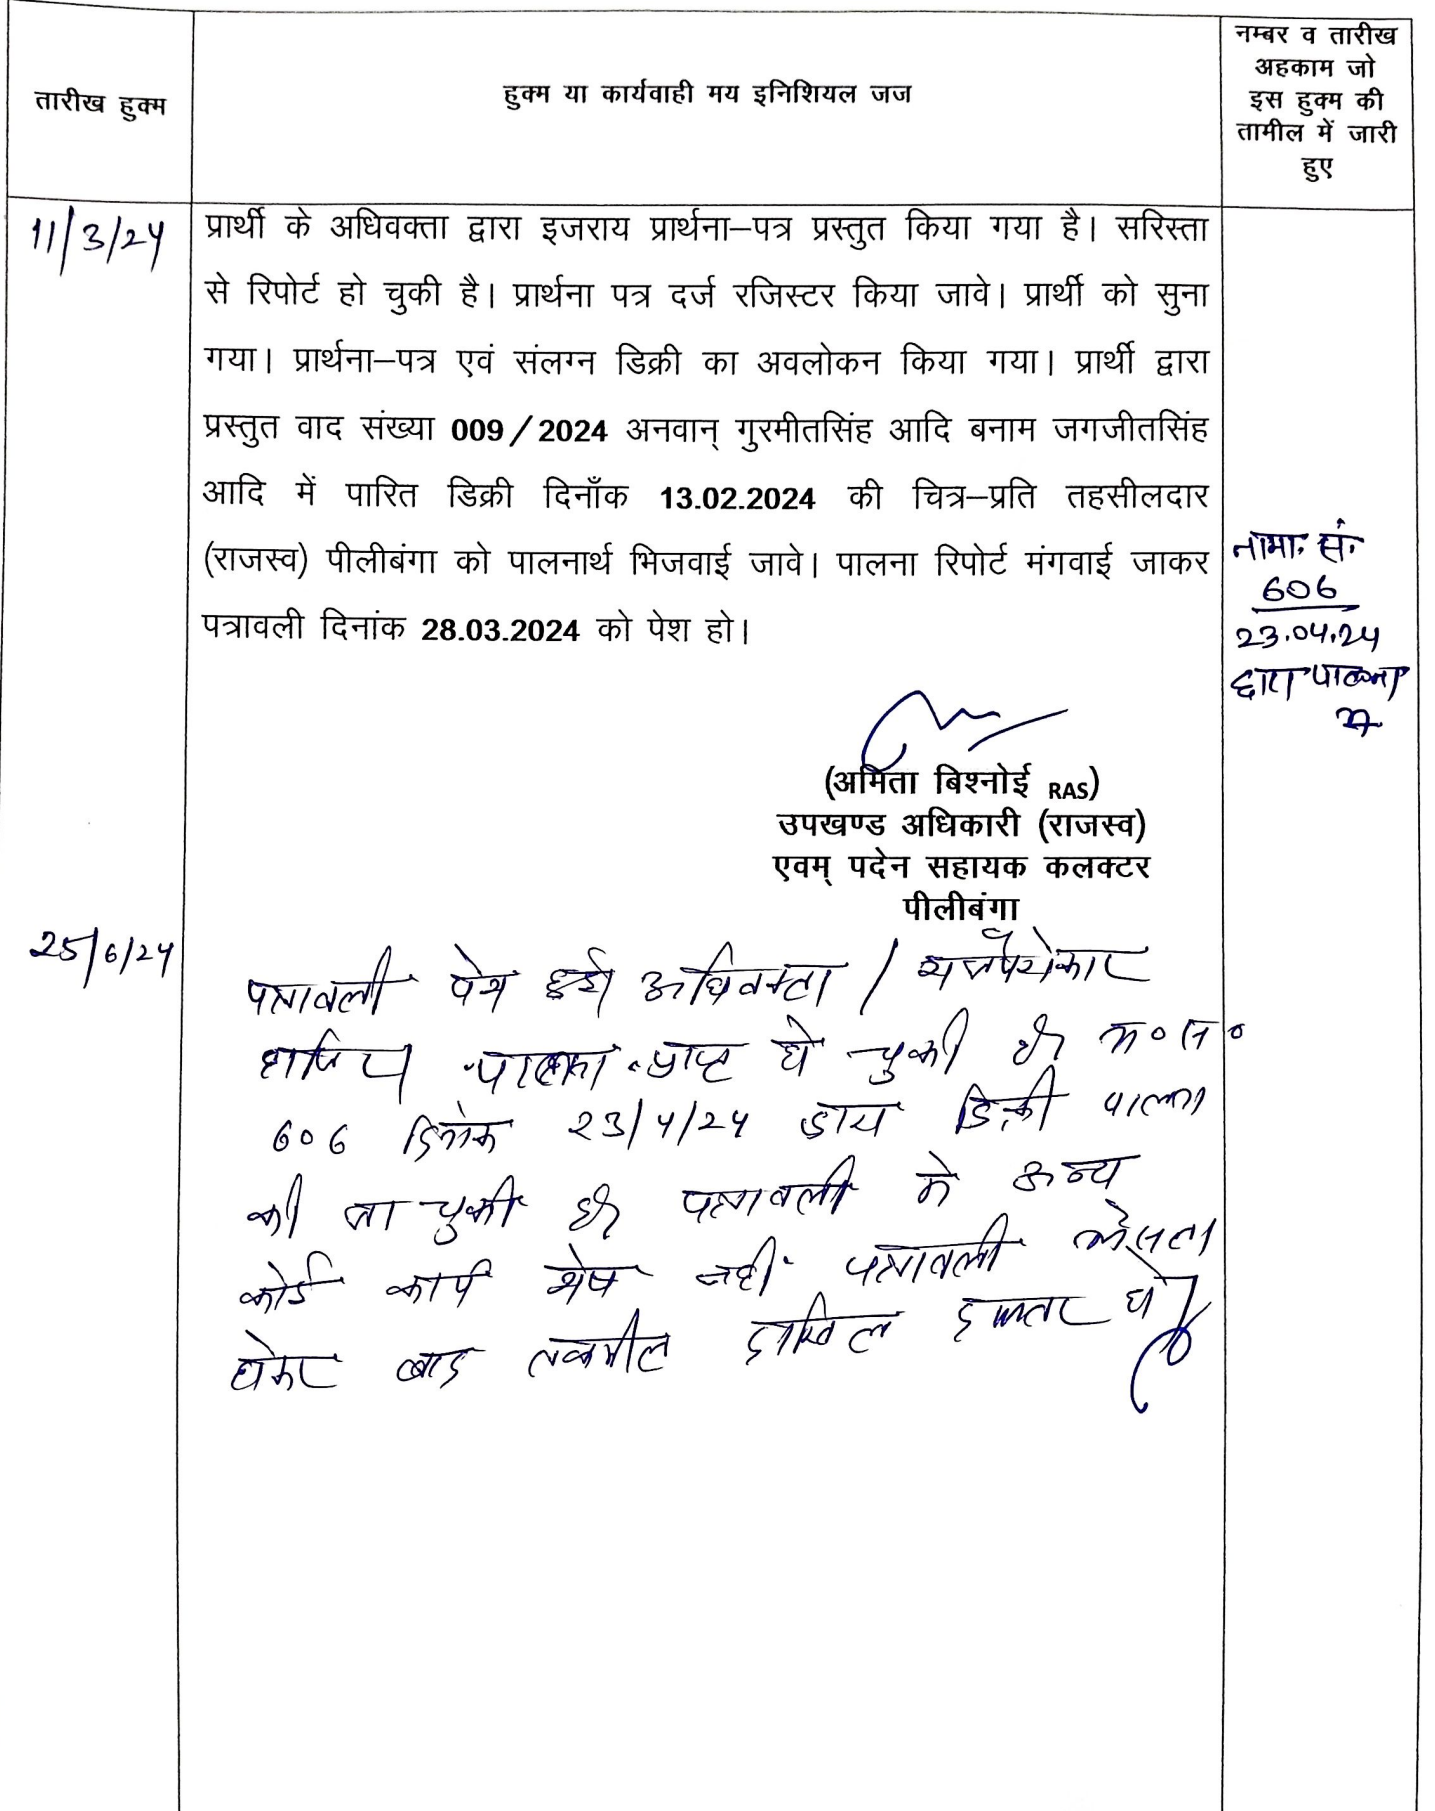 तारीख हुक्म
हुक्म या कार्यवाही मय इनिशियल जज
नम्बर व तारीख
अहकाम जो
इस हुक्म की
तामील में जारी
हुए
11/3/24
प्रार्थी के अधिवक्ता द्वारा इजराय प्रार्थना–पत्र प्रस्तुत किया गया है। सरिस्ता
से रिपोर्ट हो चुकी है। प्रार्थना पत्र दर्ज रजिस्टर किया जावे। प्रार्थी को सुना
गया। प्रार्थना–पत्र एवं संलग्न डिक्री का अवलोकन किया गया। प्रार्थी द्वारा
प्रस्तुत वाद संख्या 009/2024 अनवान् गुरमीतसिंह आदि बनाम जगजीतसिंह
आदि में पारित डिक्री दिनाँक 13.02.2024 की चित्र–प्रति तहसीलदार
(राजस्व) पीलीबंगा को पालनार्थ भिजवाई जावे। पालना रिपोर्ट मंगवाई जाकर
पत्रावली दिनांक 28.03.2024 को पेश हो।
नामा. सं.
606
23.04.24
द्वारा पालना
(अमिता बिश्नोई RAS)
उपखण्ड अधिकारी (राजस्व)
एवम् पदेन सहायक कलक्टर
पीलीबंगा
25/6/24
पत्रावली पेश हुई अधिवक्ता / राजपैरोकार
हाजिर पालना प्राप्त हो चुकी है
606 दिनांक 23/4/24 द्वारा डिक्री पालना
की जा चुकी है पत्रावली में अन्य
कोई कार्य शेष नहीं पत्रावली फैसला
होकर बाद तकमील दाखिल दफ्तर हो